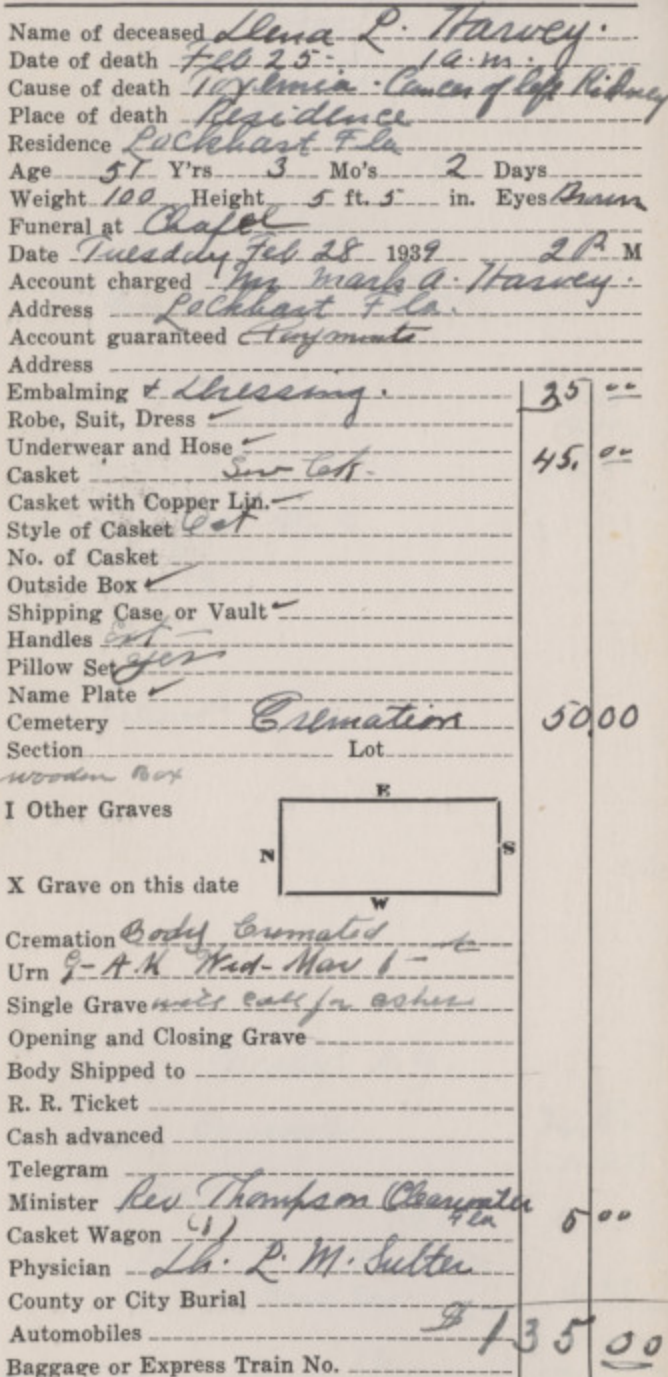 Name of deceased Lena L. Harvey.
Date of death Feb 25- 1 a.m.
Cause of death Toxemia - Cancer of left Kidney
Place of death Residence
Residence Lockhart Fla
Age 51 Y'rs 3 Mo's 2 Days
Weight 100 Height 5 ft. 5 in. Eyes Brown
Funeral at Chapel
Date Tuesday Feb 28 1939 2 P M
Account charged Mr Mark A. Harvey.
Address Lockhart Fla.
Account guaranteed Payments
Address
Embalming & Dressing. 25 00
Robe, Suit, Dress ✓
Underwear and Hose ✓
Casket 45. 00
Casket with Copper Lin. ✓
Style of Casket Oct
No. of Casket
Outside Box ✓
Shipping Case or Vault ✓
Handles Ext -
Pillow Set yes
Name Plate ✓
Cemetery Cremation 50 00
Section Lot
wooden Box
E
I Other Graves
N S
X Grave on this date
W
Cremation Body Cremated
Urn G-A K Wed- Mar 1 -
Single Grave will call for ashes
Opening and Closing Grave
Body Shipped to
R. R. Ticket
Cash advanced
Telegram
Minister Rev Thompson Clearwater
Fla 5 00
Casket Wagon (1)
Physician Dr. L. M. Sutter
County or City Burial
Automobiles $ 135 00
Baggage or Express Train No.